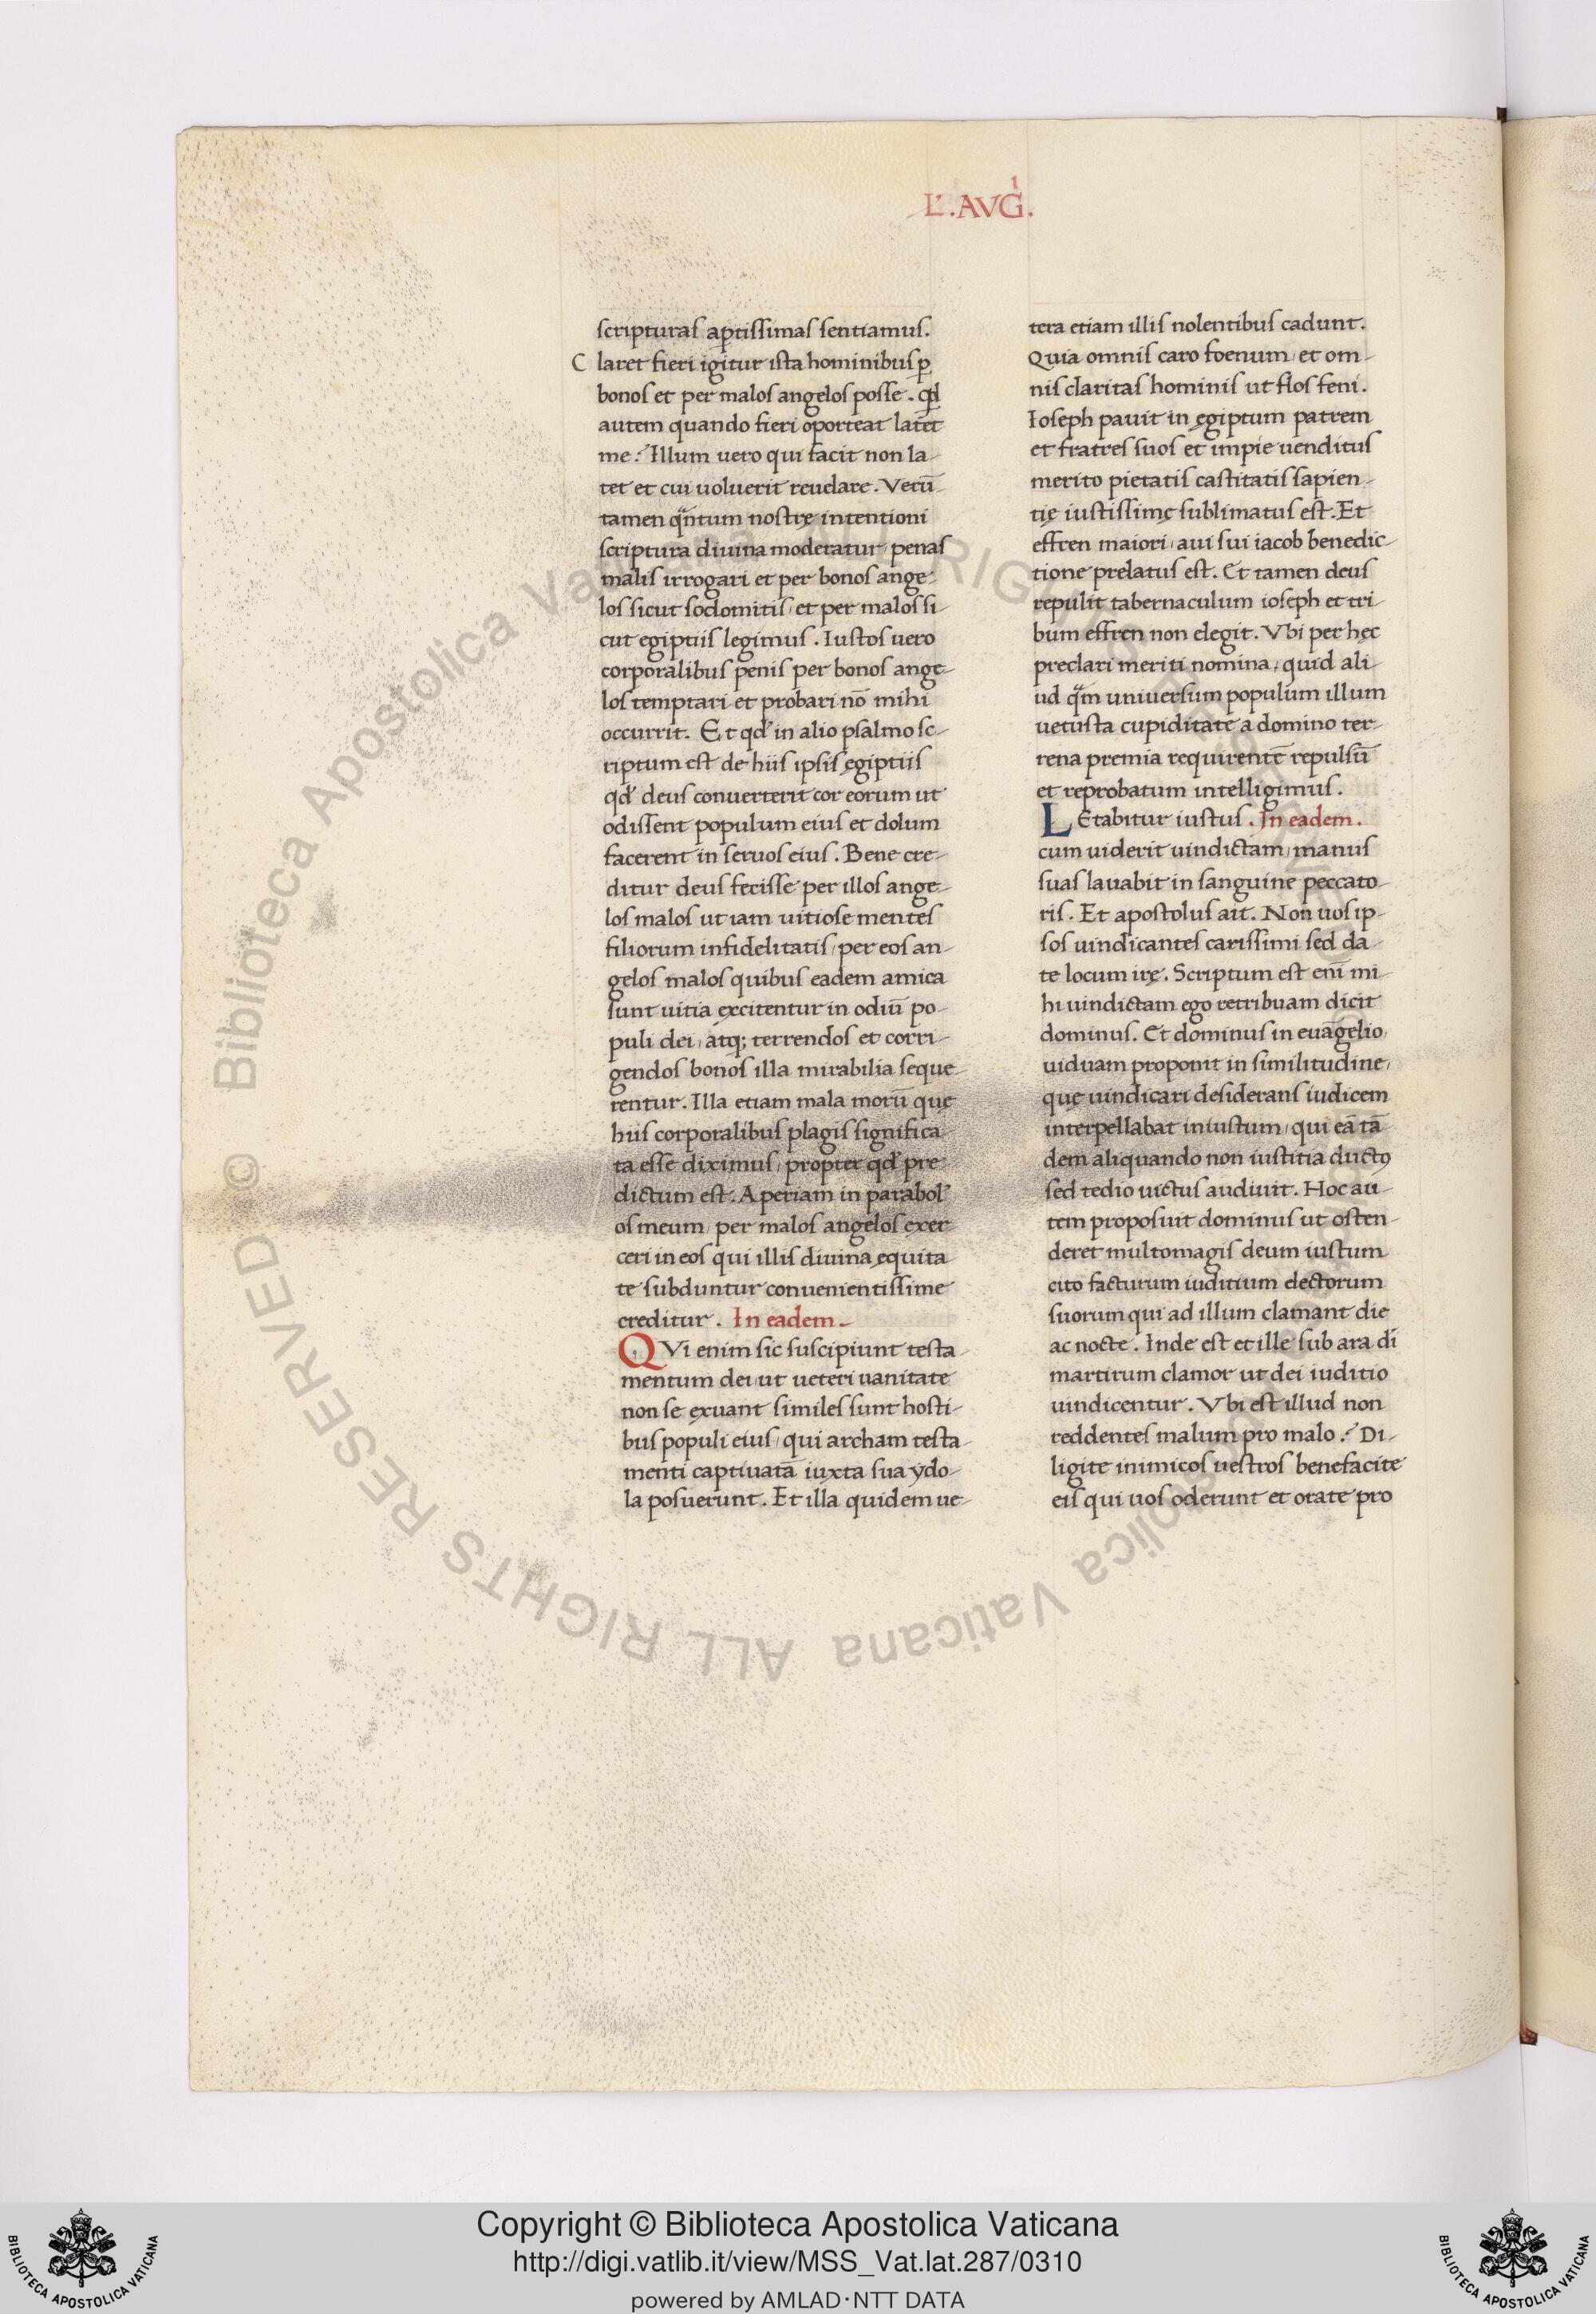 L'. AVGⁱ.
scripturas aptissimas sentiamus.
Claret fieri igitur ista hominibus ꝑ
bonos et per malos angelos posse. qd̄
autem quando fieri oporteat latet
me. Illum uero qui facit non la-
tet et cui uoluerit reuelare. Verū-
tamen qͣntum nostrę intentioni
scriptura diuina moderatur, penas
malis irrogari et per bonos ange-
los sicut sodomitis, et per malos si-
cut egiptiis legimus. Iustos uero
corporalibus penis per bonos ange-
los temptari et probari nō mihi
occurrit. Et qd' in alio psalmo sc-
riptum est de hiis ipsis egiptiis
qd' deus conuerterit cor eorum ut
odissent populum eius et dolum
facerent in seruos eius. Bene cre-
ditur deus fecisse per illos ange-
los malos ut iam uitiose mentes
filiorum infidelitatis, per eos an-
gelos malos quibus eadem amica
sunt uitia excitentur in odiū po-
puli dei, atq; terrendos et corri-
gendos bonos illa mirabilia seque-
rentur. Illa etiam mala morū quę
hiis corporalibus plagis significa-
ta esse diximus, propter qd' pre-
dictum est. Aperiam in parabol'
os meum, per malos angelos exer-
ceri in eos qui illis diuina equita-
te subduntur conuenientissime
creditur. In eadem.
QVi enim sic suscipiunt testa-
mentum dei, ut ueteri uanitate
non se exuant similes sunt hosti-
bus populi eius, qui archam testa-
menti captiuatā iuxta sua ydo-
la posuerunt. Et illa quidem ue-
tera etiam illis nolentibus cadunt.
Quia omnis caro foenum, et om-
nis claritas hominis ut flos feni.
Ioseph pauit in egiptum patrem
et fratres suos et impie uenditus
merito pietatis castitatis sapien-
tię iustissimę sublimatus est. Et
effren maiori, aui sui iacob benedic-
tione prelatus est. Et tamen deus
repulit tabernaculum ioseph et tri-
bum effren non elegit. Vbi per hęc
preclari meriti nomina, quid ali-
ud qͣm uniuersum populum illum
uetusta cupiditate a domino ter-
rena premia requirentē repulsū
et reprobatum intelligimus.
LEtabitur iustus. In eadem.
cum uiderit uindictam, manus
suas lauabit in sanguine peccato-
ris. Et apostolus ait. Non uos ip-
sos uindicantes carissimi sed da-
te locum irę. Scriptum est enī mi-
hi uindictam ego retribuam dicit
dominus. Et dominus in euāgelio,
uiduam proponit in similitudine,
quę uindicari desiderans iudicem
interpellabat iniustum, qui eā tā-
dem aliquando non iustitia ductꝰ
sed tedio uictus audiuit. Hoc au-
tem proposuit dominus ut osten-
deret multomagis deum iustum
cito facturum iuditium electorum
suorum qui ad illum clamant die
ac nocte. Inde est et ille sub ara dī
martirum clamor ut dei iuditio
uindicentur. Vbi est illud non
reddentes malum pro malo. Di-
ligite inimicos uestros benefacite
eis qui uos oderunt et orate pro
© Biblioteca Apostolica Vaticana ALL RIGHTS RESERVED
Copyright © Biblioteca Apostolica Vaticana
http://digi.vatlib.it/view/MSS_Vat.lat.287/0310
powered by AMLAD·NTT DATA
BIBLIOTECA APOSTOLICA VATICANA
BIBLIOTECA APOSTOLICA VATICANA